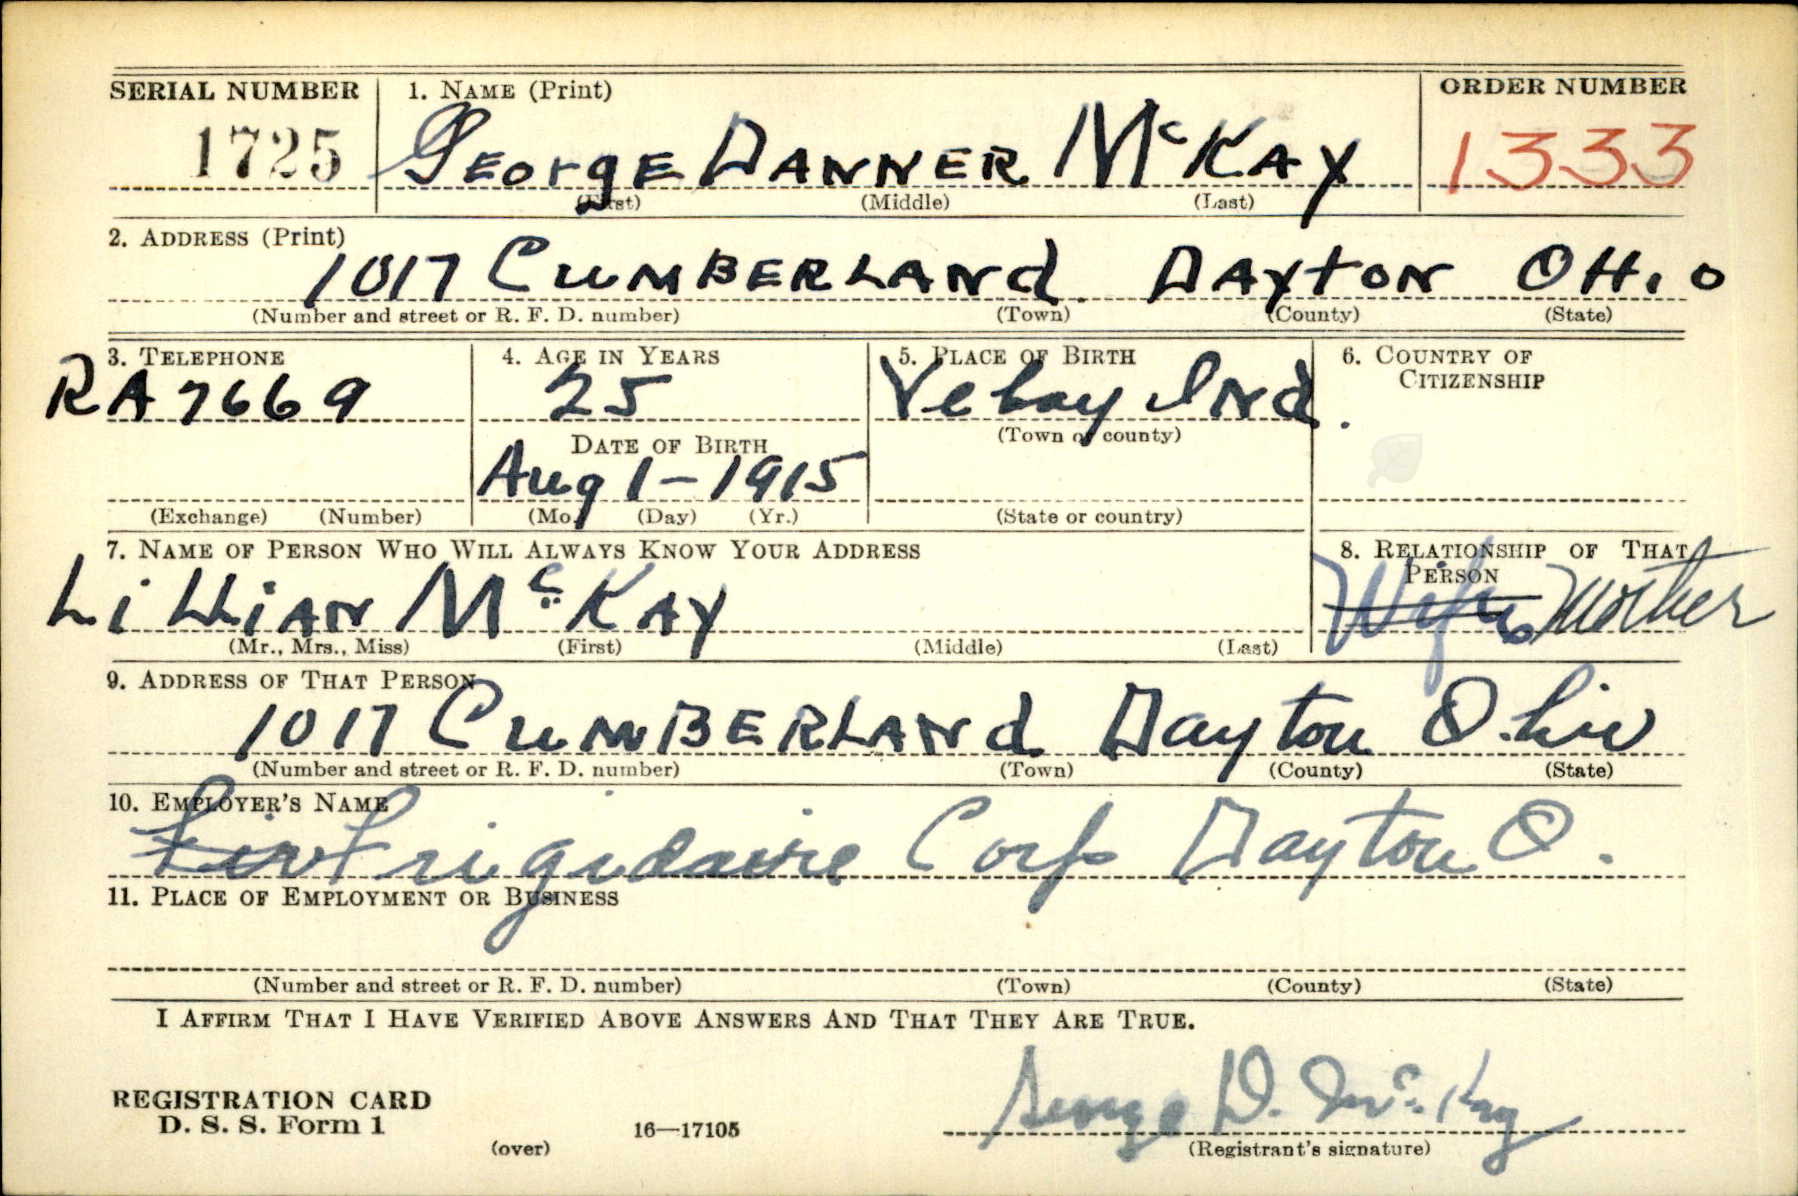 SERIAL NUMBER 1. NAME (Print) ORDER NUMBER
1725 GEorgE DANNER McKAY 1333
(First) (Middle) (Last)
2. ADDRESS (Print)
1017 CUMBERLANd DAYTON OHiO
(Number and street or R. F. D. number) (Town) (County) (State)
3. TELEPHONE 4. AGE IN YEARS 5. PLACE OF BIRTH 6. COUNTRY OF CITIZENSHIP
RA 7669 25 Vebay INd.
DATE OF BIRTH (Town or county)
Aug 1 - 1915
(Exchange) (Number) (Mo.) (Day) (Yr.) (State or country)
7. NAME OF PERSON WHO WILL ALWAYS KNOW YOUR ADDRESS 8. RELATIONSHIP OF THAT PERSON
LiLLiAN McKAY Wife Mother
(Mr., Mrs., Miss) (First) (Middle) (Last)
9. ADDRESS OF THAT PERSON
1017 CUMBERLANd Dayton Ohio
(Number and street or R. F. D. number) (Town) (County) (State)
10. EMPLOYER'S NAME
Frigidaire Corp Dayton O.
11. PLACE OF EMPLOYMENT OR BUSINESS
(Number and street or R. F. D. number) (Town) (County) (State)
I AFFIRM THAT I HAVE VERIFIED ABOVE ANSWERS AND THAT THEY ARE TRUE.
George D. McKay
REGISTRATION CARD
D. S. S. Form 1 (over) 16—17105 (Registrant's signature)